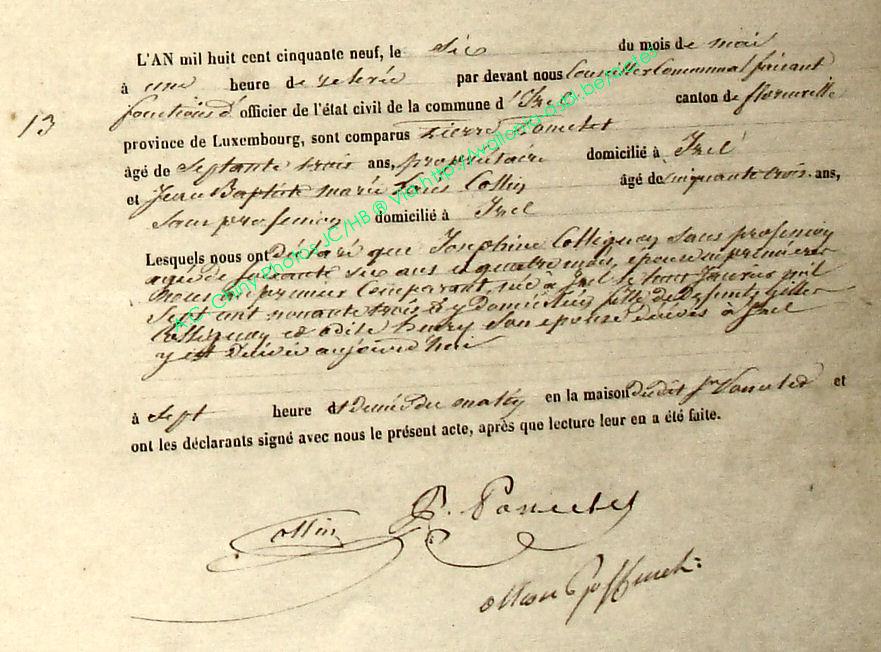 L'AN mil huit cent cinquante neuf, le six du mois de mai
à une heure de relevée par devant nous Conseiller Communal faisant
13
fonctions d'officier de l'état civil de la commune d'Izel canton de florenville
province de Luxembourg, sont comparus Pierre
âgé de septante trois ans, propriétaire domicilié à Izel
et Jean Baptiste marie Collin âgé de cinquante trois ans,
sans profession domicilié à Izel
Lesquels nous ont déclaré que Joséphine Collignon sans profession
agée de soixante six ans et quatre mois, épouse en premières
noces du premier Comparant, née à Izel le Janvier mil
sept cent nonante trois et y domiciliée fille de Defunts
Collignon et odile henry son épouse décédés à Izel
y est décédée aujourd'hui
à sept heure et demie du matin en la maison dudit et
ont les déclarants signé avec nous le présent acte, après que lecture leur en a été faite.
Collin P.
A.C. Chiny Photos JC/HB ® Via http://wallonia-asbl.be/actes